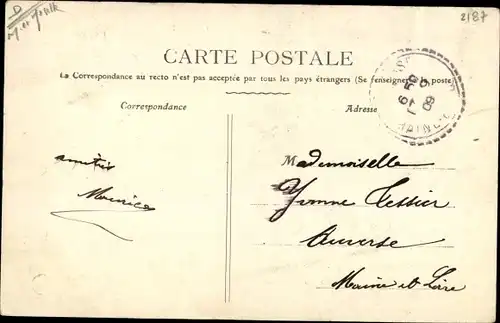 D
2187
CARTE POSTALE
La Correspondance au recto n'est pas acceptée par tous les pays étrangers (Se renseigner à la poste)
Correspondance
Adresse
amitiés
Maurice
Mademoiselle
Yvonne Tessier
Auverse
Maine et Loire